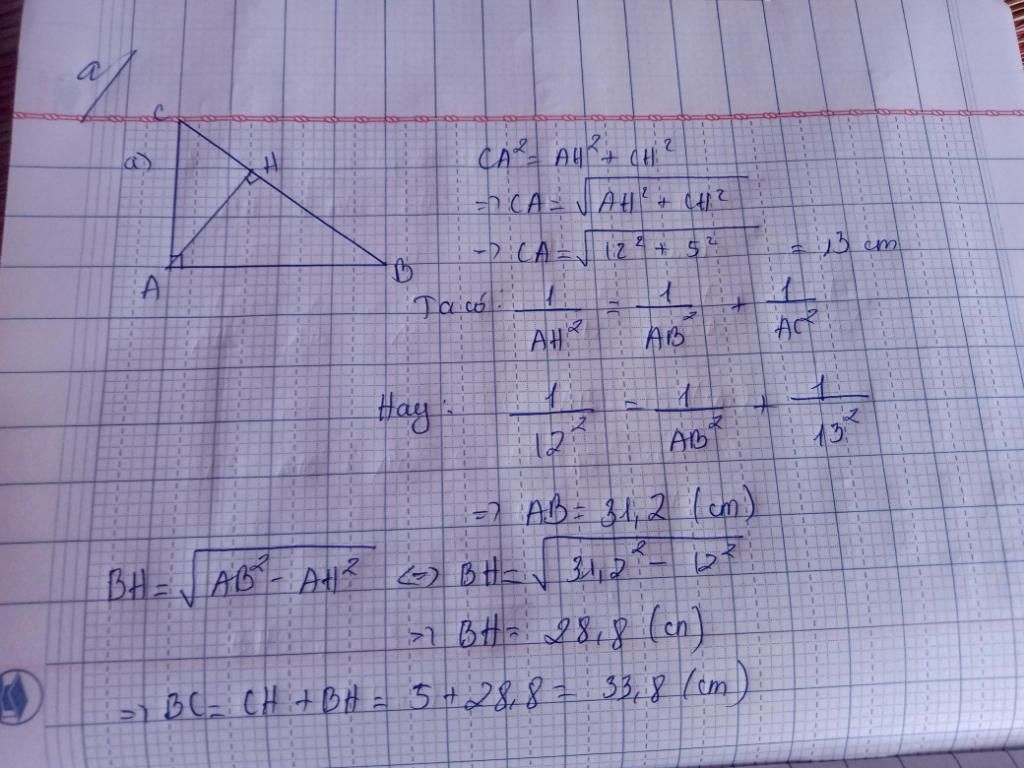 a
C
a)
H
A
B
CA² = AH² + CH²
=> CA = √(AH² + CH²)
-> CA = √(12² + 5²) = 13 cm
Ta có: 1/AH² = 1/AB² + 1/AC²
Hay: 1/12² = 1/AB² + 1/13²
=> AB = 31,2 (cm)
BH = √(AB² - AH²) <=> BH = √(31,2² - 12²)
=> BH = 28,8 (cm)
=> BC = CH + BH = 5 + 28,8 = 33,8 (cm)